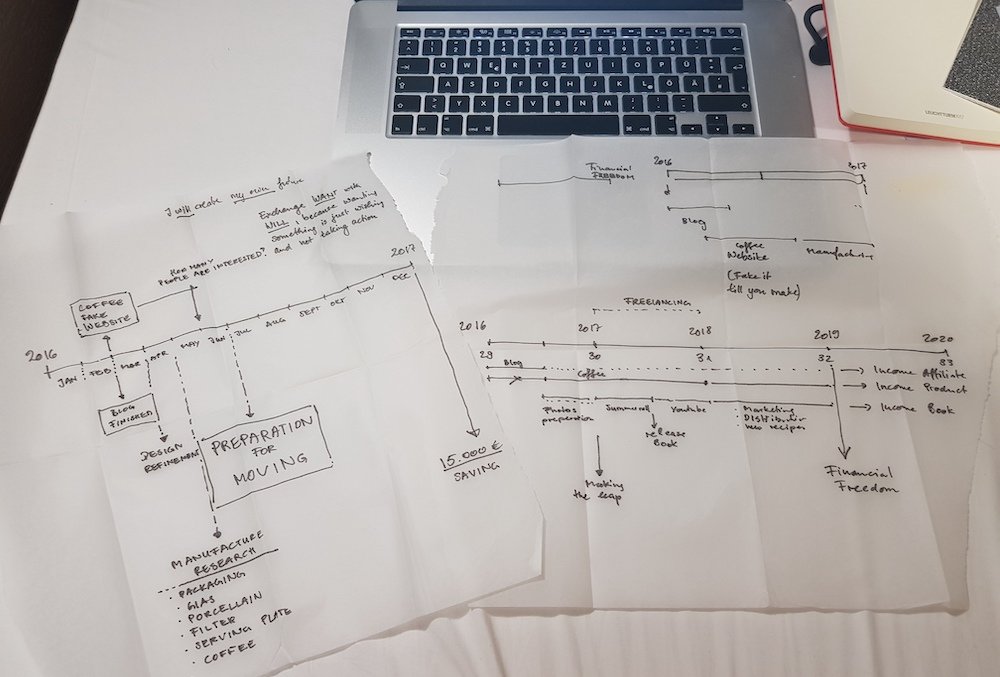 Q W E R T Z U I O P Ü
A S D F G H J K L Ö Ä
Y X C V B N M
ctrl alt cmd cmd alt
LEUCHTTURM1917
I will create my own future
Exchange WANT with
WILL, because wanting
something is just wishing
and not taking action
HOW MANY
PEOPLE ARE INTERESTED?
COFFEE
FAKE
WEBSITE
2016
JAN FEB MAR APR MAY JUN JUL AUG SEPT OKT NOV DEC
2017
BLOG
FINISHED
DESIGN
REFINEMENT
PREPARATION
FOR
MOVING
15.000 €
SAVING
MANUFACTURE
RESEARCH
• PACKAGING
• GLAS
• PORCELLAIN
• FILTER
• SERVING PLATE
• COFFEE
Financial
FREEDOM
2016
2017
Blog
Coffee
Website
Manufacturing
(Fake it
till you make)
FREELANCING
2016 2017 2018 2019 2020
29 30 31 32 33
Blog
→ Income Affiliate
Coffee
→ Income Product
→ Income Book
Photos
preparation
Youtube
• Marketing
• Distributor
release
Book
Making
the leap
Financial
Freedom